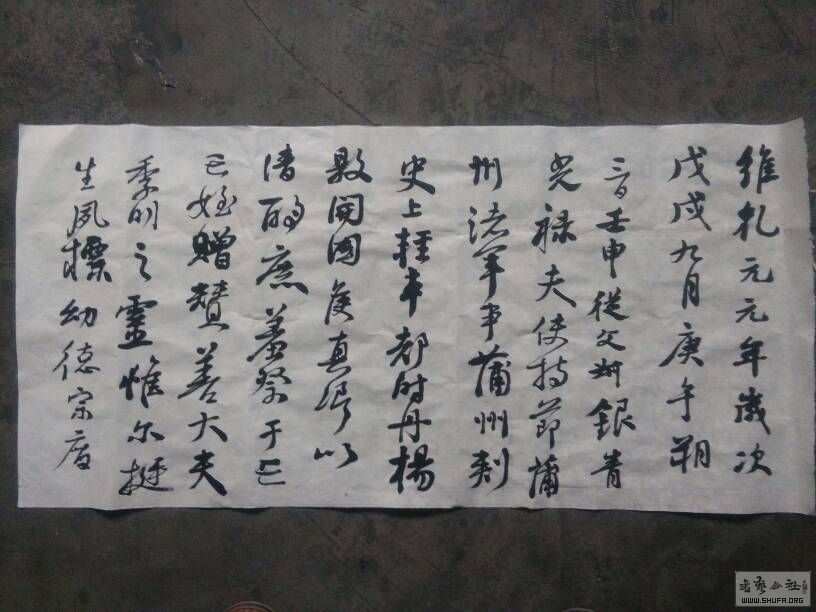 維乹元元年歲次
戊戌九月庚午朔
三日壬申從父叔銀青
光祿夫使持節蒲
州諸軍事蒲州刺
史上輕車都尉丹楊
縣開國侯真卿以
清酌庶羞祭于亡
亡姪贈贊善大夫
季明之靈惟尔挺
生夙標幼德宗廟
書藝公社
WWW.SHUFA.ORG